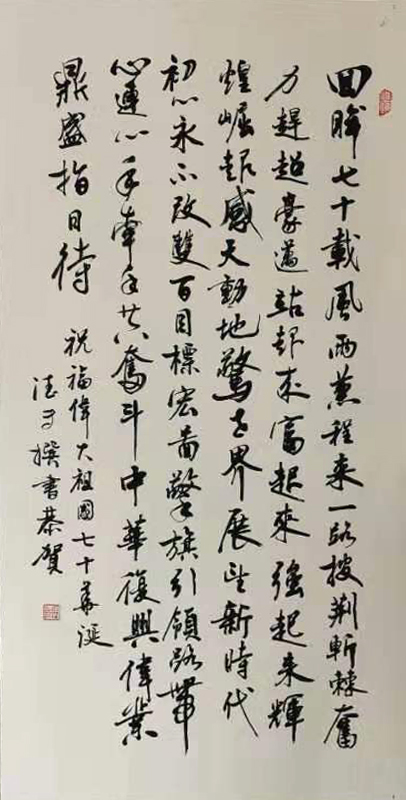 回眸七十載風雨兼程来一路披荆斬棘奮
力趕超豪邁站起来富起來强起来輝
煌崛起感天動地驚世界展望新時代
初心永不改雙百目標宏圖擎旗引領路帶
心連心手牽手共奮斗中華復興偉業
鼎盛指日待
祝福偉大祖國七十華诞
撰書恭賀